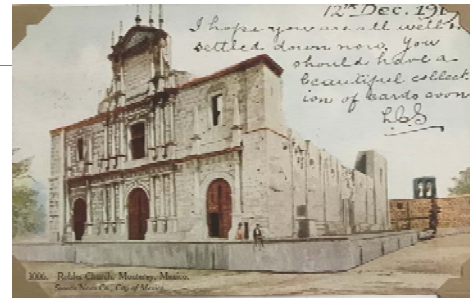 12th Dec. 191
I hope you are all well &
settled down now, you
should have a
beautiful collect
ion of cards soon
LCS
1006. Roble Church, Monterey, Mexico.
Sonora News Co., City of Mexico.